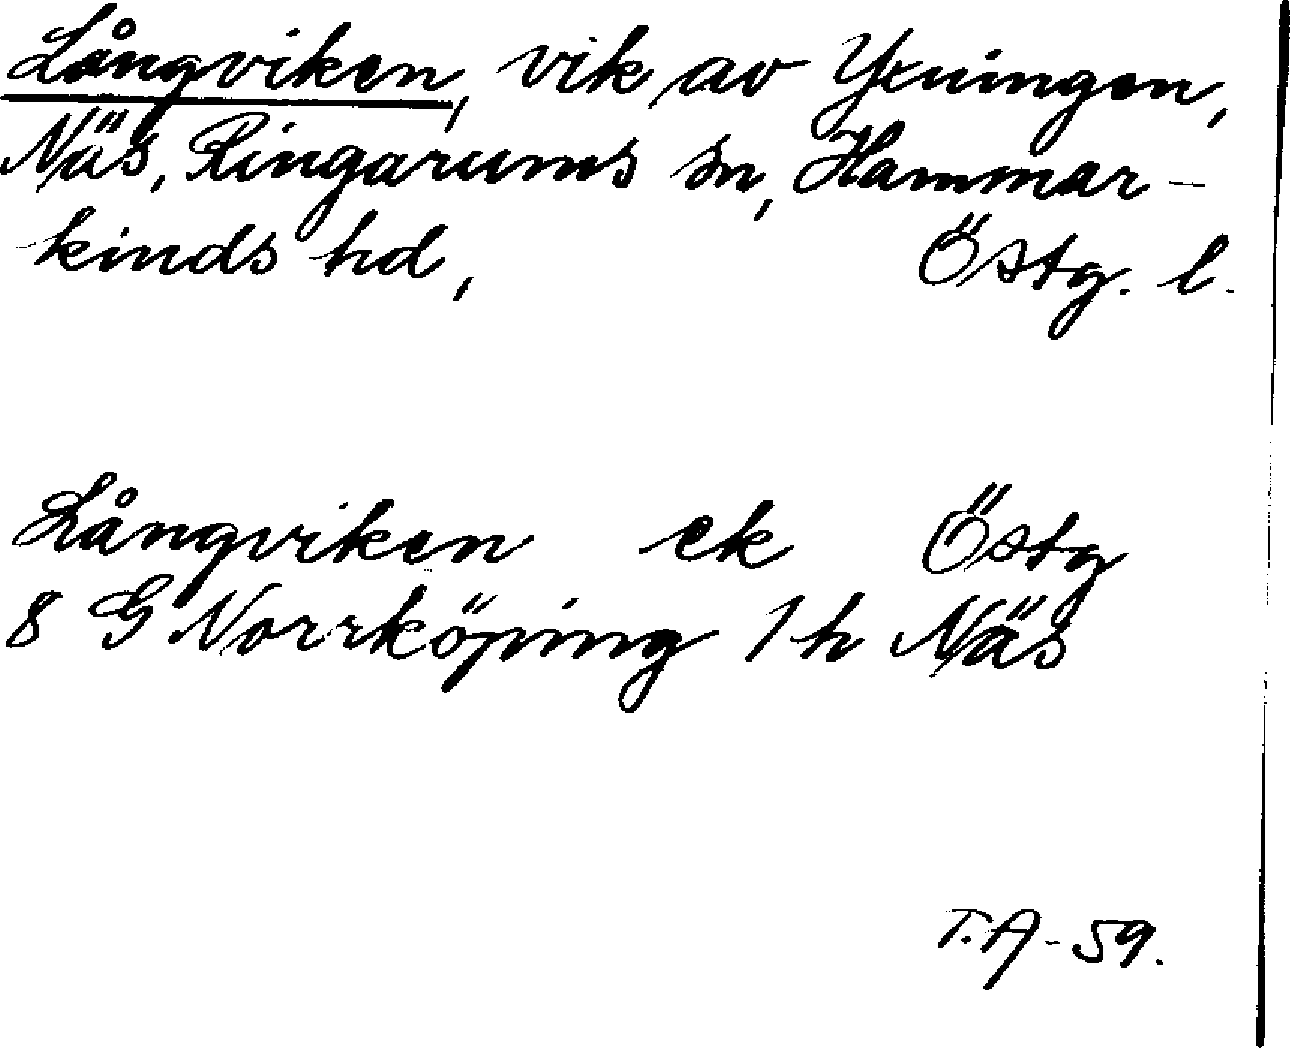 Långviken, vik av Yxningen,
Näs, Ringarums sn, Hammar-
kinds hd, Östg. l.
Långviken ek Östg
8 G Norrköping 1 h Näs
T.A-59.